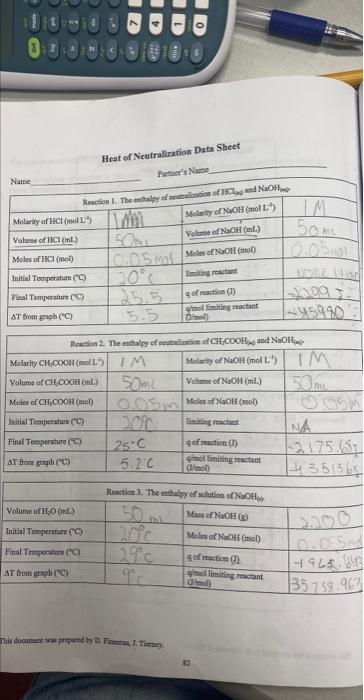 mode
2nd
log
7
4
1
0
Heat of Neutralization Data Sheet
Name
Partner's Name
Reaction 1. The enthalpy of neutralization of HCl(aq) and NaOH(aq)
Molarity of HCl (mol L⁻¹) 1M Molarity of NaOH (mol L⁻¹) 1M
Volume of HCl (mL) 50mL Volume of NaOH (mL) 50 mL
Moles of HCl (mol) 0.05mol Moles of NaOH (mol) 0.05mol
Initial Temperature (°C) 20°C limiting reactant
Final Temperature (°C) 25.5 q of reaction (J)
ΔT from graph (°C) 5.5 q/mol limiting reactant (J/mol) -45980
Reaction 2. The enthalpy of neutralization of CH₃COOH(aq) and NaOH(aq)
Molarity CH₃COOH (mol L⁻¹) 1M Molarity of NaOH (mol L⁻¹) 1M
Volume of CH₃COOH (mL) 50mL Volume of NaOH (mL) 50mL
Moles of CH₃COOH (mol) 0.05m Moles of NaOH (mol) 0.05m
Initial Temperature (°C) 20°C limiting reactant NA
Final Temperature (°C) 25°C q of reaction (J) -2175.68J
ΔT from graph (°C) 5.2°C q/mol limiting reactant (J/mol)
Reaction 3. The enthalpy of solution of NaOH(s)
Volume of H₂O (mL) 50 mL Mass of NaOH (g) 2.200
Initial Temperature (°C) 20°C Moles of NaOH (mol) 0.055mol
Final Temperature (°C) 29°C q of reaction (J)
ΔT from graph (°C) 9°C q/mol limiting reactant (J/mol) 35738.963
This document was prepared by D. Finneran, J. Tierney.